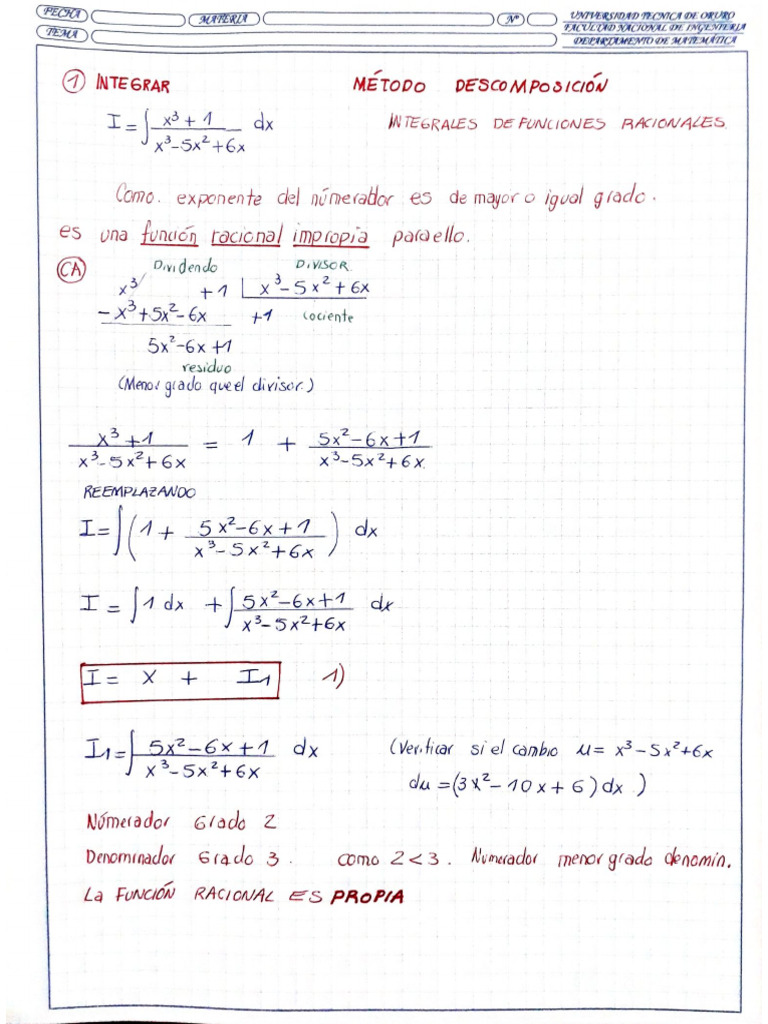 FECHA MATERIA Nº UNIVERSIDAD TECNICA DE ORURO
FACULTAD NACIONAL DE INGENIERIA
TEMA DEPARTAMENTO DE MATEMÁTICA
① INTEGRAR MÉTODO DESCOMPOSICIÓN
I = ∫ (x³ + 1)/(x³ - 5x² + 6x) dx INTEGRALES DE FUNCIONES RACIONALES.
Como. exponente del númerador es de mayor o igual grado.
es una función racional impropia para ello.
CA Dividendo DIVISOR
x³ + 1 | x³ - 5x² + 6x
- x³ + 5x² - 6x +1 cociente
5x² - 6x + 1
residuo
(Menor grado que el divisor.)
(x³ + 1)/(x³ - 5x² + 6x) = 1 + (5x² - 6x + 1)/(x³ - 5x² + 6x)
REEMPLAZANDO
I = ∫ (1 + (5x² - 6x + 1)/(x³ - 5x² + 6x)) dx
I = ∫ 1 dx + ∫ (5x² - 6x + 1)/(x³ - 5x² + 6x) dx
I = x + I₁ 1)
I₁ = ∫ (5x² - 6x + 1)/(x³ - 5x² + 6x) dx (Verificar si el cambio u = x³ - 5x² + 6x
du = (3x² - 10x + 6) dx )
Númerador Grado 2
Denominador Grado 3. como 2 < 3. Numerador menor grado denomin.
La FUNCIÓN RACIONAL ES PROPIA